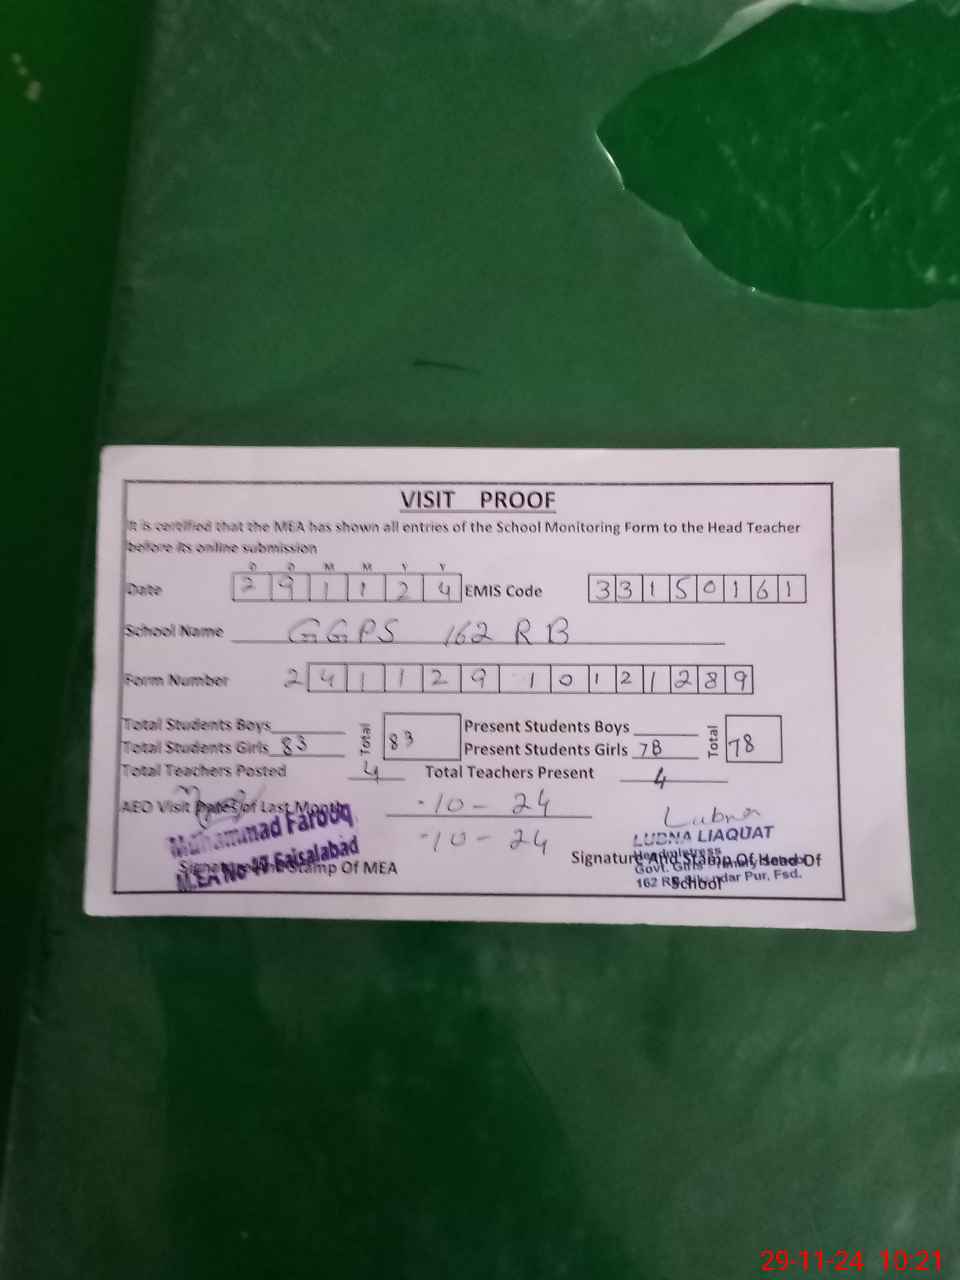 VISIT PROOF
It is certified that the MEA has shown all entries of the School Monitoring Form to the Head Teacher
before its online submission
D D M M Y Y
Date 2 9 1 1 2 4 EMIS Code 3 3 1 5 0 1 6 1
School Name GGPS 162 RB
Form Number 2 4 1 1 2 9 1 0 1 2 1 2 8 9
Total Students Boys Total 83 Present Students Boys Total 78
Total Students Girls 83 Present Students Girls 78
Total Teachers Posted 4 Total Teachers Present 4
AEO Visit Dates of Last Month -10-24
-10-24
Muhammad Farooq
M.E.A No Faisalabad
Signature And Stamp Of MEA
Lubna
LUBNA LIAQUAT
Headmistress
Govt. Girls Primary School
162 RB Sikandar Pur, Fsd.
Signature And Stamp Of Head Of
School
29-11-24 10:21